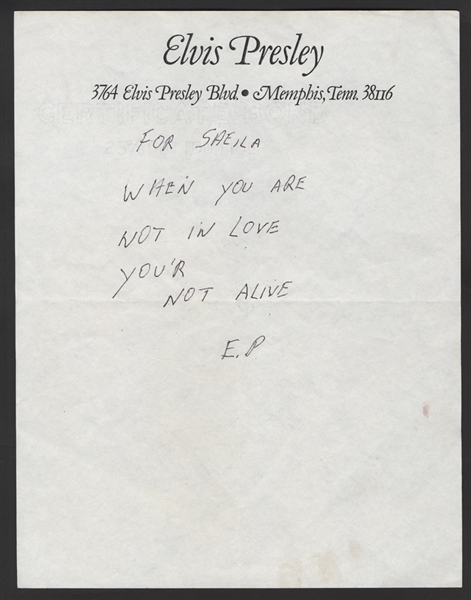 Elvis Presley
3764 Elvis Presley Blvd. • Memphis, Tenn. 38116
FOR SHEILA
WHEN YOU ARE
NOT IN LOVE
YOU'R
NOT ALIVE
E.P